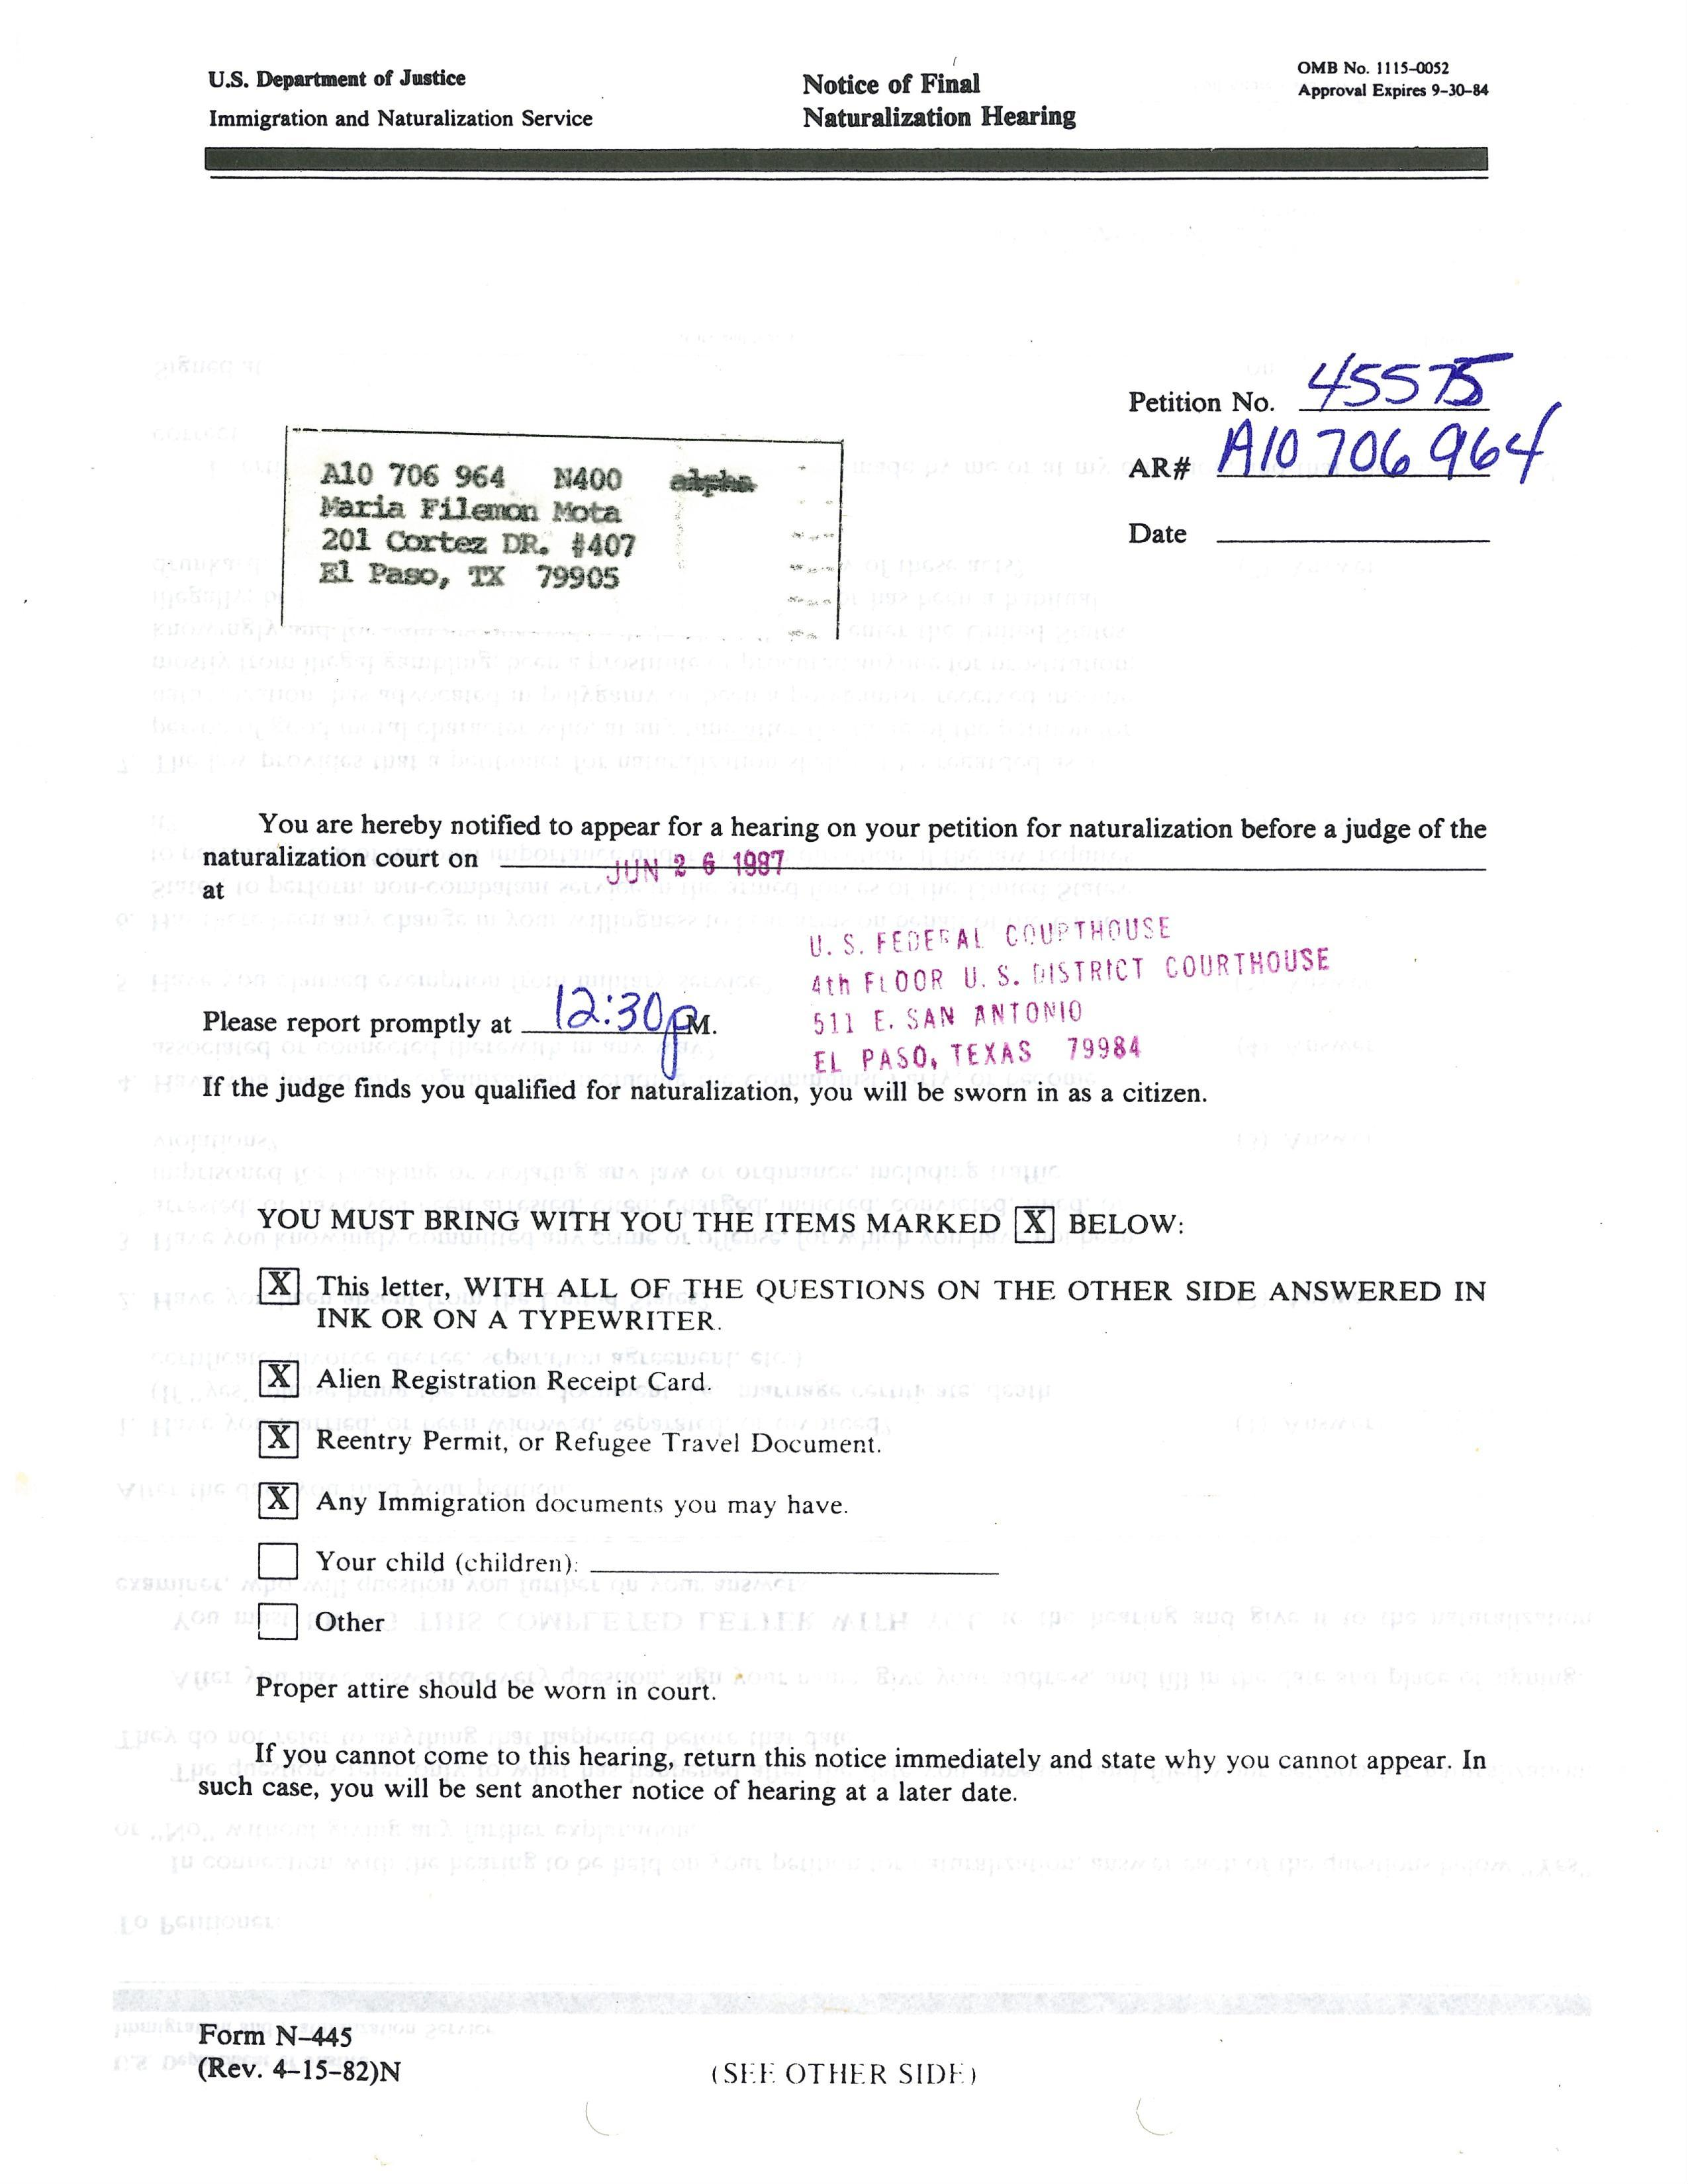 U.S. Department of Justice
Immigration and Naturalization Service
Notice of Final
Naturalization Hearing
OMB No. 1115-0052
Approval Expires 9-30-84
Petition No. 45575
AR# A10 706 964
Date
A10 706 964 N400 alpha
Maria Filemon Mota
201 Cortez DR. #407
El Paso, TX 79905
You are hereby notified to appear for a hearing on your petition for naturalization before a judge of the
naturalization court on JUN 26 1987
at
U. S. FEDERAL COURTHOUSE
4th FLOOR U. S. DISTRICT COURTHOUSE
511 E. SAN ANTONIO
EL PASO, TEXAS 79984
Please report promptly at 12:30 p M.
If the judge finds you qualified for naturalization, you will be sworn in as a citizen.
YOU MUST BRING WITH YOU THE ITEMS MARKED X BELOW:
X This letter, WITH ALL OF THE QUESTIONS ON THE OTHER SIDE ANSWERED IN
INK OR ON A TYPEWRITER.
X Alien Registration Receipt Card.
X Reentry Permit, or Refugee Travel Document.
X Any Immigration documents you may have.
Your child (children):
Other
Proper attire should be worn in court.
If you cannot come to this hearing, return this notice immediately and state why you cannot appear. In
such case, you will be sent another notice of hearing at a later date.
Form N-445
(Rev. 4-15-82)N
(SEE OTHER SIDE)